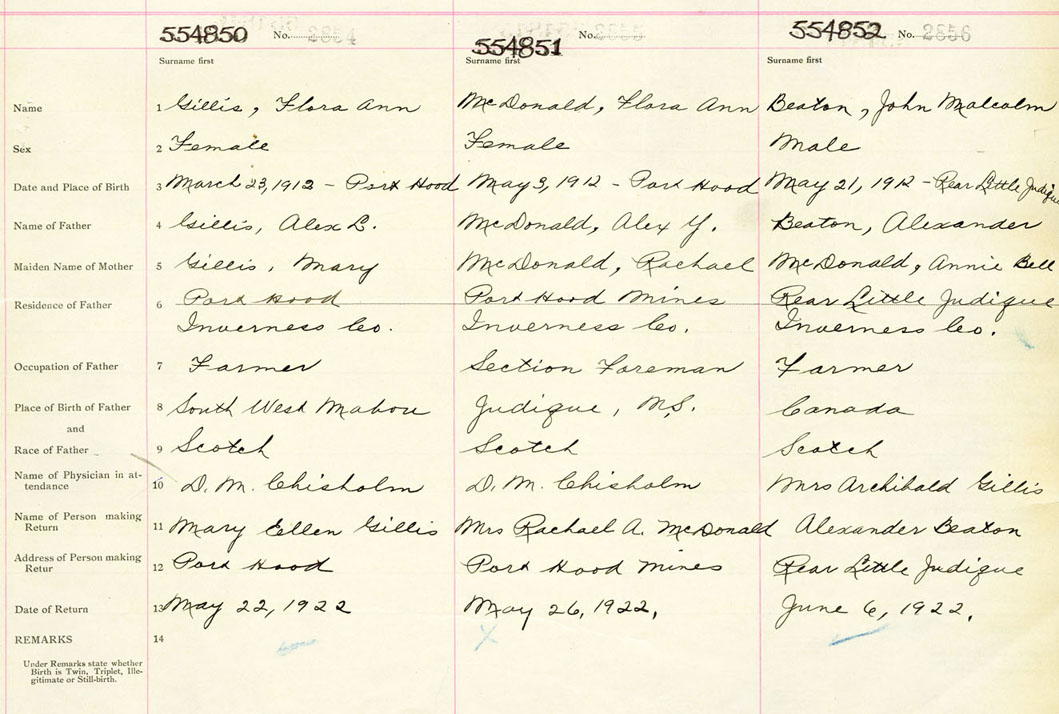 554850 No. 2854 554851 No. 554852 No. 2856
Surname first Surname first Surname first
Name 1 Gillis, Flora Ann McDonald, Flora Ann Beaton, John Malcolm
Sex 2 Female Female Male
Date and Place of Birth 3 March 23, 1912 - Port Hood May 3, 1912 - Port Hood May 21, 1912 - Rear Little Judique
Name of Father 4 Gillis, Alex L. McDonald, Alex Y. Beaton, Alexander
Maiden Name of Mother 5 Gillis, Mary McDonald, Rachael McDonald, Annie Bell
Residence of Father 6 Port Hood Port Hood Mines Rear Little Judique
Inverness Co. Inverness Co. Inverness Co.
Occupation of Father 7 Farmer Section Foreman Farmer
Place of Birth of Father 8 South West Mabou Judique, N.S. Canada
and
Race of Father 9 Scotch Scotch Scotch
Name of Physician in at-
tendance 10 D. M. Chisholm D. M. Chisholm Mrs Archibald Gillis
Name of Person making
Return 11 Mary Ellen Gillis Mrs Rachael A. McDonald Alexander Beaton
Address of Person making
Retur 12 Port Hood Port Hood Mines Rear Little Judique
Date of Return 13 May 22, 1922 May 26, 1922. June 6, 1922.
REMARKS 14
Under Remarks state whether
Birth is Twin, Triplet, Ille-
gitimate or Still-birth.